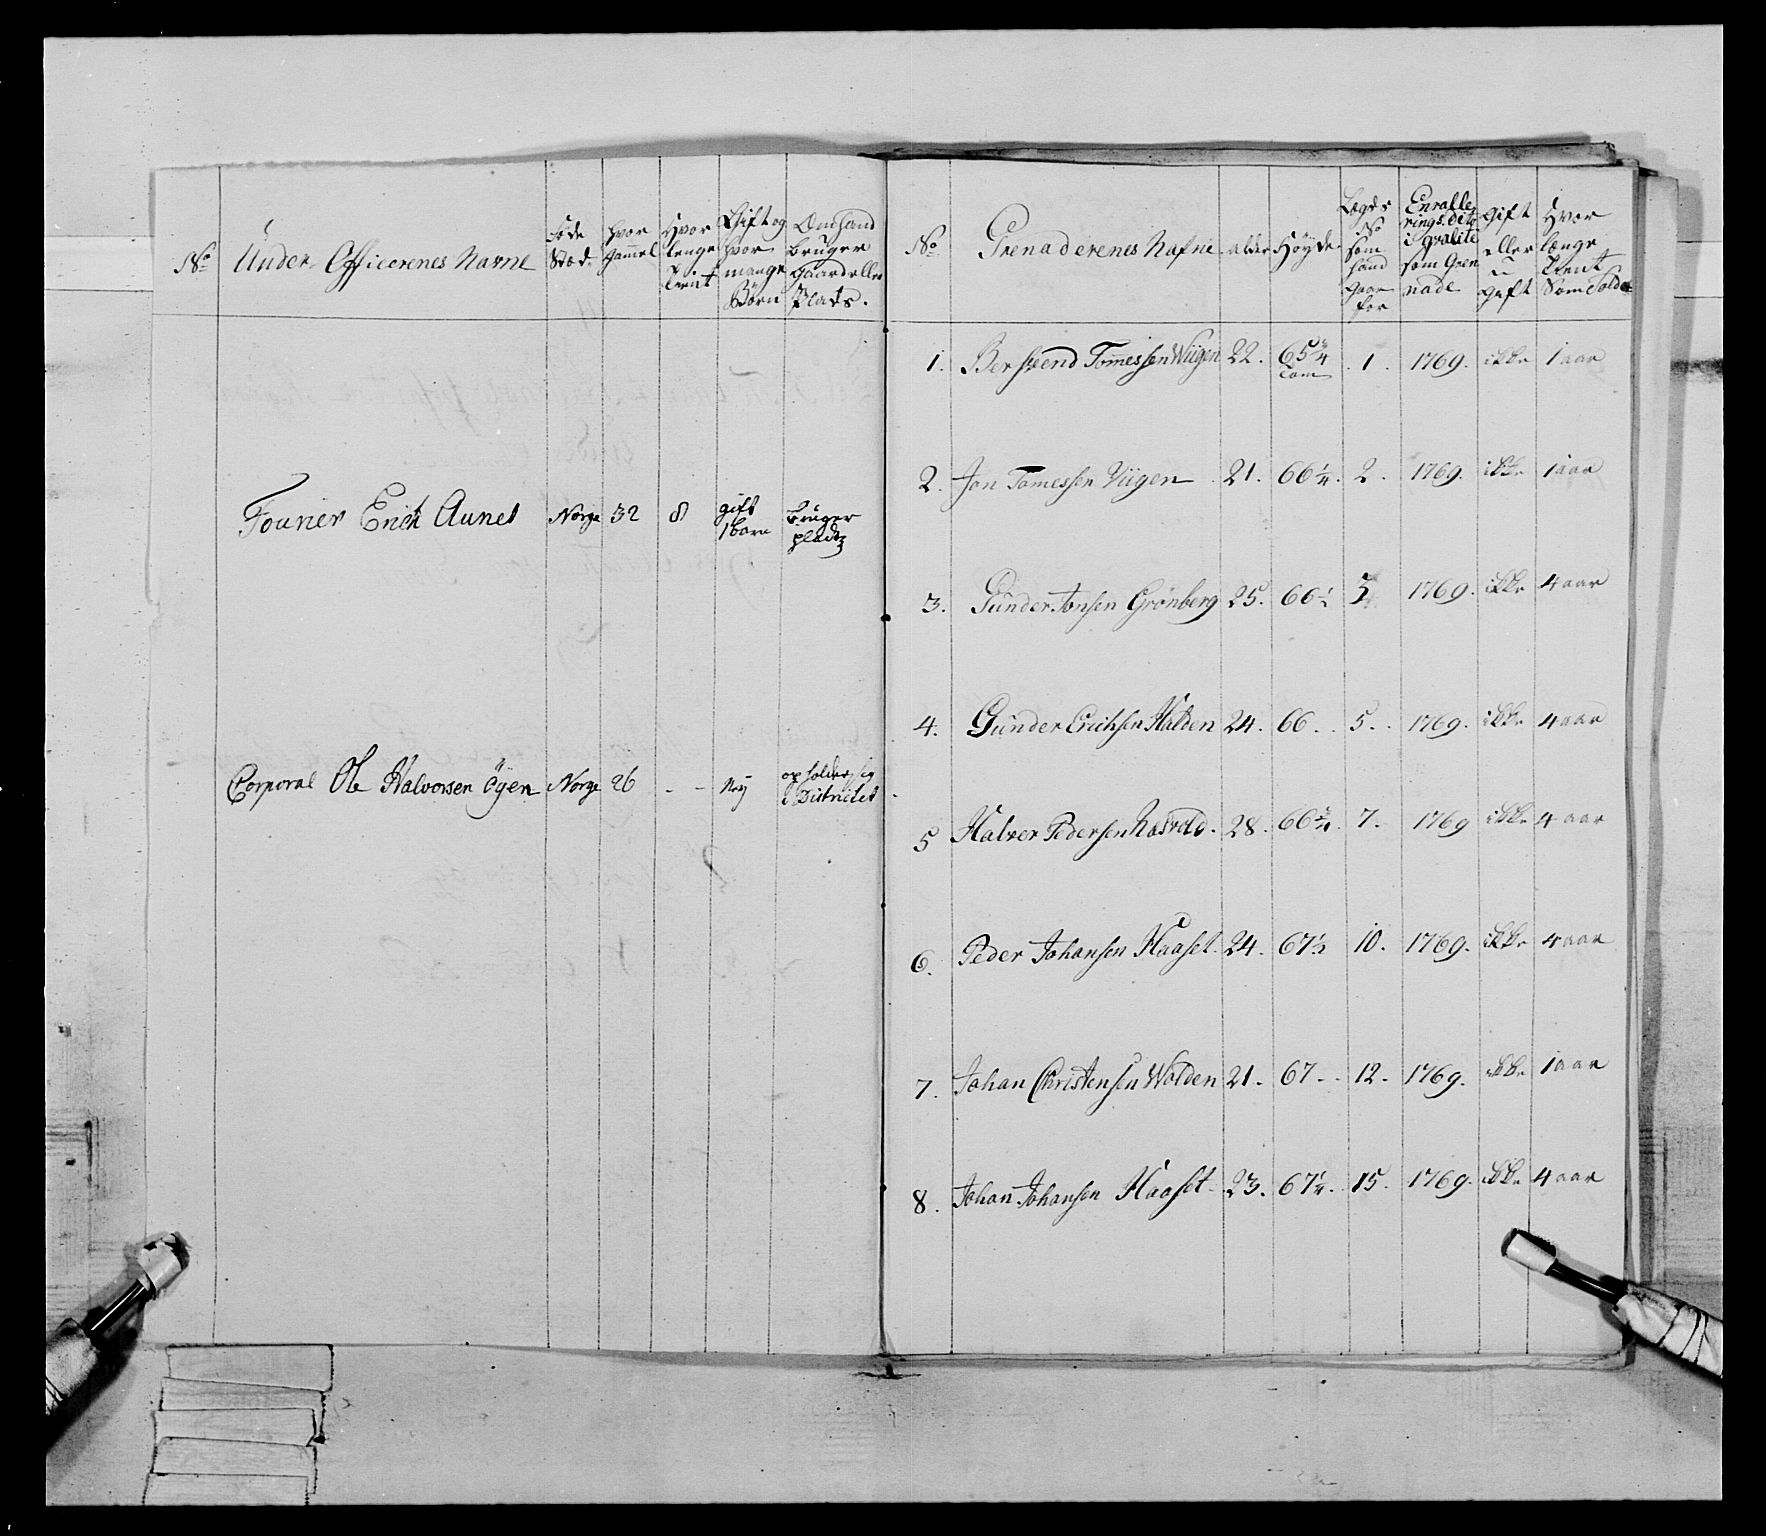 No Under-Officerenes Navne Føde Stæd hvor Gammel Hvor lenge tient Gift og hvor mange Börn Om hand bruger Gaard eller Plads.
Fourier Erich Aunet Norge 32 8 gift 1 barn bruger pladz
Corporal Ole Halvorsen Öyen Norge 26 - - Ney op holder sig i Districtet
No Grenaderenes Nafne alder Höyde Lægds No som hand gaar for Enrollerings dito i qvalite som Grenade Gift eller u gift Hvor længe tient Som Soldat
1. Tomessen Wiigen 22. 65 3/4 1. 1769. ikke 1 aar
2. Jon Tomessen Viigen 21. 66 1/4. 2. 1769. ikke 1 aar
3. Gunder Jonsen Grönberg 25. 66 1/2 1769. ikke 4 aar
4. Gunder Erichsen Halden 24. 66.. 5. 1769. ikke 4 aar
5 Halver Pedersen 28. 66 3/4. 7. 1769 ikke 4 aar
6. Peder Johansen Haaset. 24. 67 1/2 10. 1769. ikke 4 aar
7. Johan Christensen Wolden 21. 67.. 12. 1769. ikke 1 aar
8. Johan Johansen Haaset. 23. 67 1/4. 15. 1769. ikke 4 aar